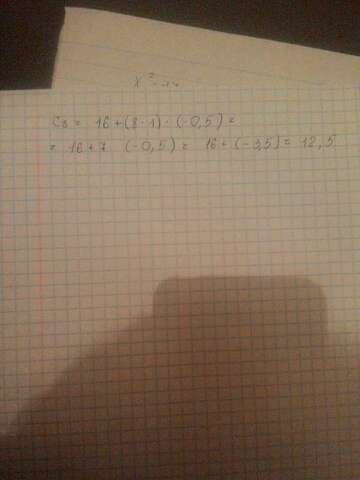 C₈ = 16 + (8 - 1) · (-0,5) =
= 16 + 7 (-0,5) = 16 + (-3,5) = 12,5